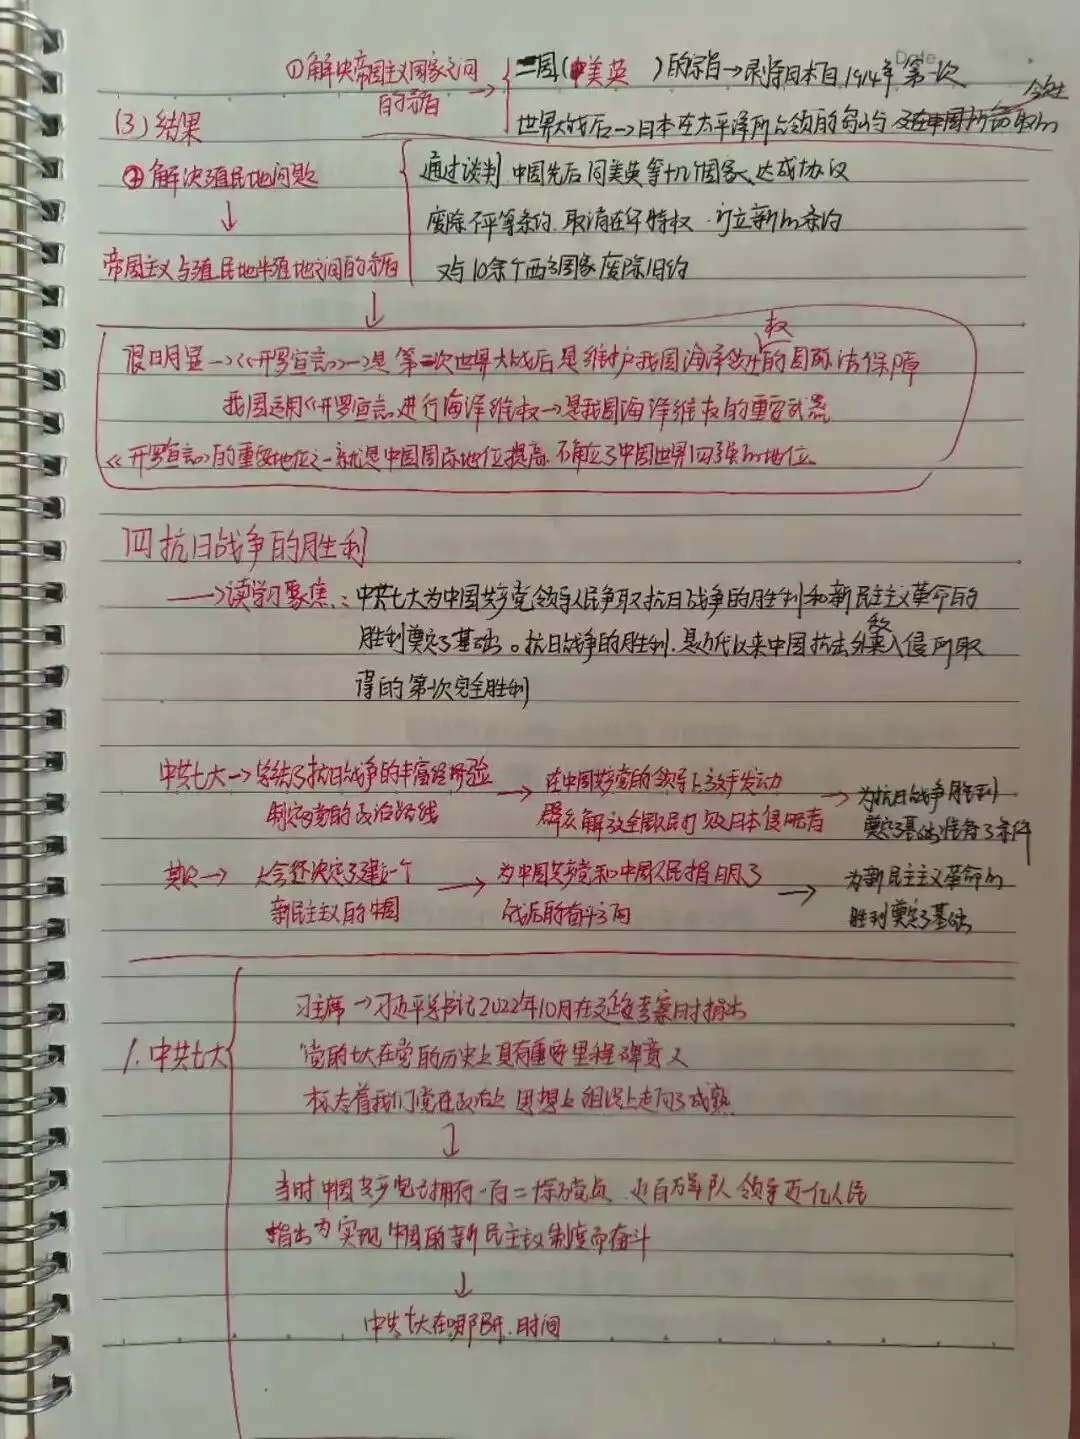 Date
①解决帝国主义国家之间 → 三国(中美英 )的宗旨→剥夺日本自1914年第一次
的矛盾
世界大战后→日本在太平洋所占领的岛屿 及在中国所 取的
(3)结果
②解决殖民地问题
通过谈判 中国先后同美英等十几个国家、达成协议
↓
废除不平等条约.取消在华特权.订立新的条约
帝国主义与殖民地半殖地之间的矛盾
又与10余个西方国家废除旧约
↓
权
很明显→《开罗宣言》→是第二次世界大战后是维护我国海洋领土的国际法保障
我国运用《开罗宣言》进行海洋维权→是我国海洋维权的重要武器
《开罗宣言》的重要地位之一就是中国国际地位提高.不确立了中国世界四强的地位
四 抗日战争的胜利
→读学习聚焦:中共七大为中国共产党领导人民争取抗日战争的胜利和新民主主义革命的
胜利奠定了基础。抗日战争的胜利.是近代以来中国抗击外敌入侵所取
得的第一次完全胜利
中共七大→总结了抗日战争的丰富经验 → 在中国共产党的领导上放手发动 → 为抗日战争胜利
制定党的政治路线 群众解放全国民打败日本侵略者 奠定了基础准备了条件
其次→ 大会还决定了建立一个 → 为中国共产党和中国人民指明了 → 为新民主主义革命的
新民主主义的中国 战后的奋斗方向 胜利奠定了基础
习主席→习近平总书记2022年10月在延安考察时指出
1.中共七大
党的七大在党的历史上具有重要里程碑意义
标志着我们党在政治上 思想上 组织上走向了成熟
↓
当时中国共产党已拥有一百二十万党员.近百万军队 领导近一亿人民
指出为实现中国的新民主主义制度而奋斗
↓
中共七大在哪召开.时间